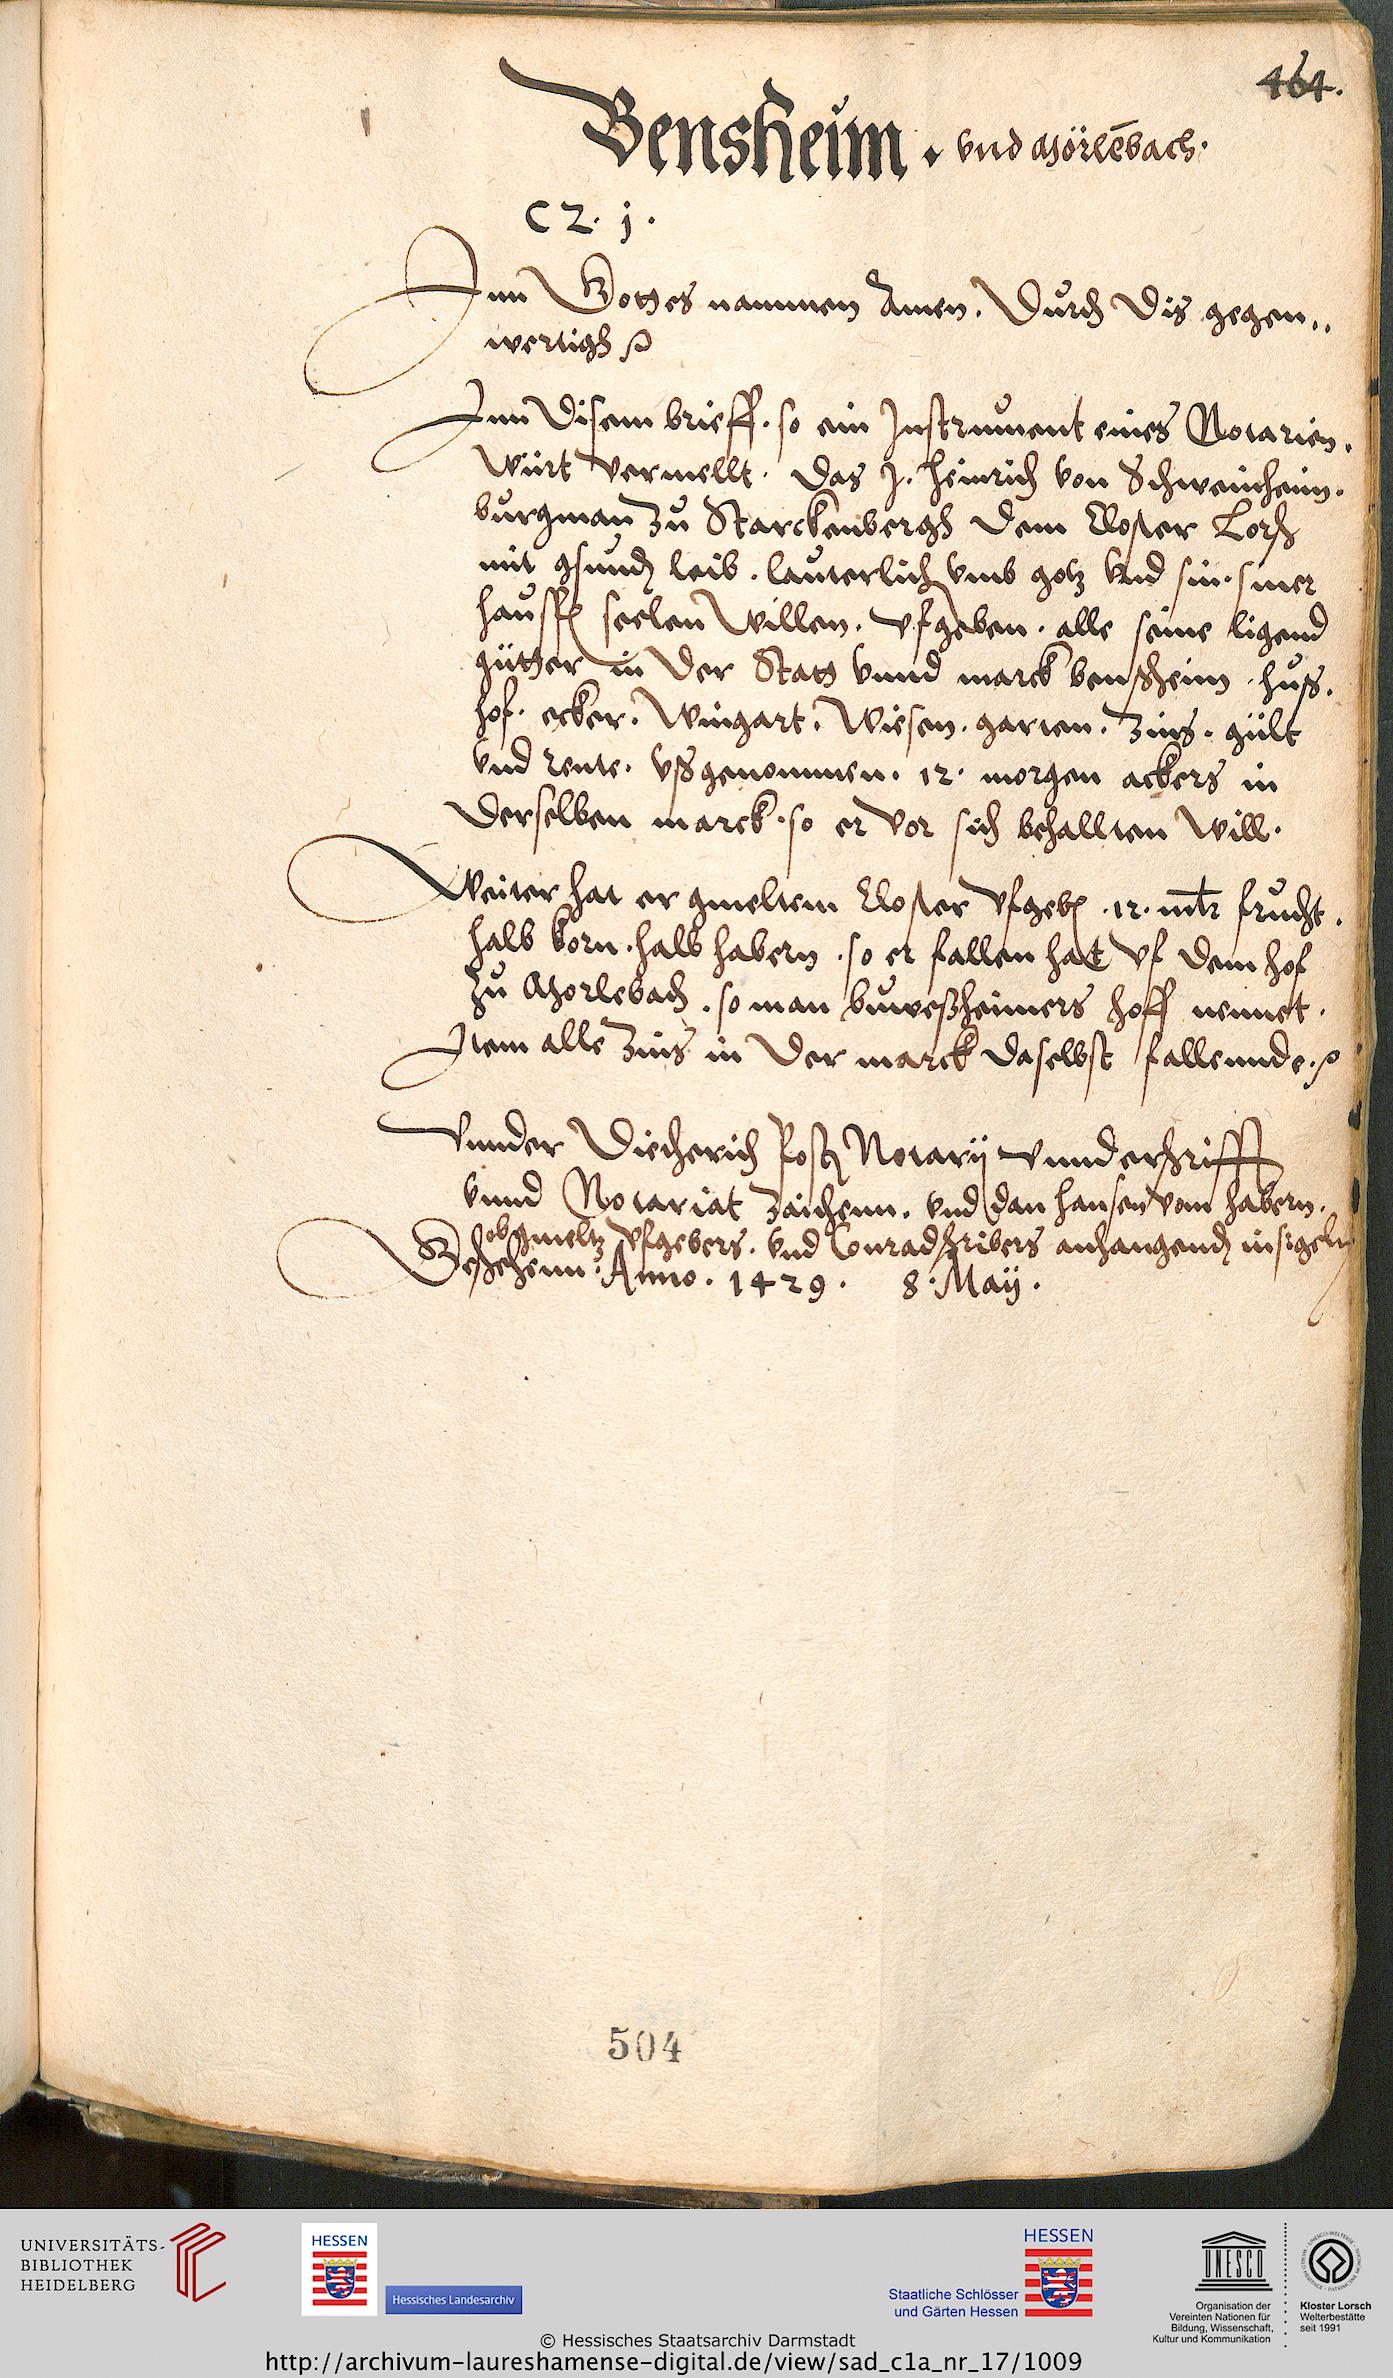 464.
Bensheim . vnd Mörlēbach.
C 2. j.
Inn Gottes nammen Amen. Durch Dis gegen..
wertigh
Inn Disem brieff. so ein Instrument eines Notarien.
Würt vermellt. Das J. Heinrich von Schweinheim.
burgman zu Starckenbergh dem Closter Lorsch
mit gsund leib. lauterlich vmb gotz vnd sin. siner
hausf seelen Willen. vfgeben. alle seine ligend
gütter in der Statt vnnd marck benßheim. huß.
hof. ecker. Wingart. Wiesen. garten. Zins. gült
vnd rente. vßgenommen. 12. morgen ackers in
derselben marck. so er vor sich behallten Will.
Weiter hat er gmeltem Closter vfgeb .12. mltr frucht.
halb korn. halb habern. so er fallen hat vf dem hof
zu Morlebach. so man buweßheimers hoff nennet.
Item alle Zins in der marck daselbst fallennde.
Vnnder Dietherich Notarij vnnderschrifft
vnnd Notariat Zaichenn. vnd dan hansen vom habern.
obgmeltz vfgebers. vnd Conrad schribers anhangend insigeln
Geschehenn. Anno. 1429. 8. Maij.
504
UNIVERSITÄTS-
BIBLIOTHEK
HEIDELBERG
HESSEN
Hessisches Landesarchiv
HESSEN
Staatliche Schlösser
und Gärten Hessen
UNESCO
Organisation der
Vereinten Nationen für
Bildung, Wissenschaft,
Kultur und Kommunikation
Kloster Lorsch
Welterbestätte
seit 1991
© Hessisches Staatsarchiv Darmstadt
http://archivum-laureshamense-digital.de/view/sad_c1a_nr_17/1009